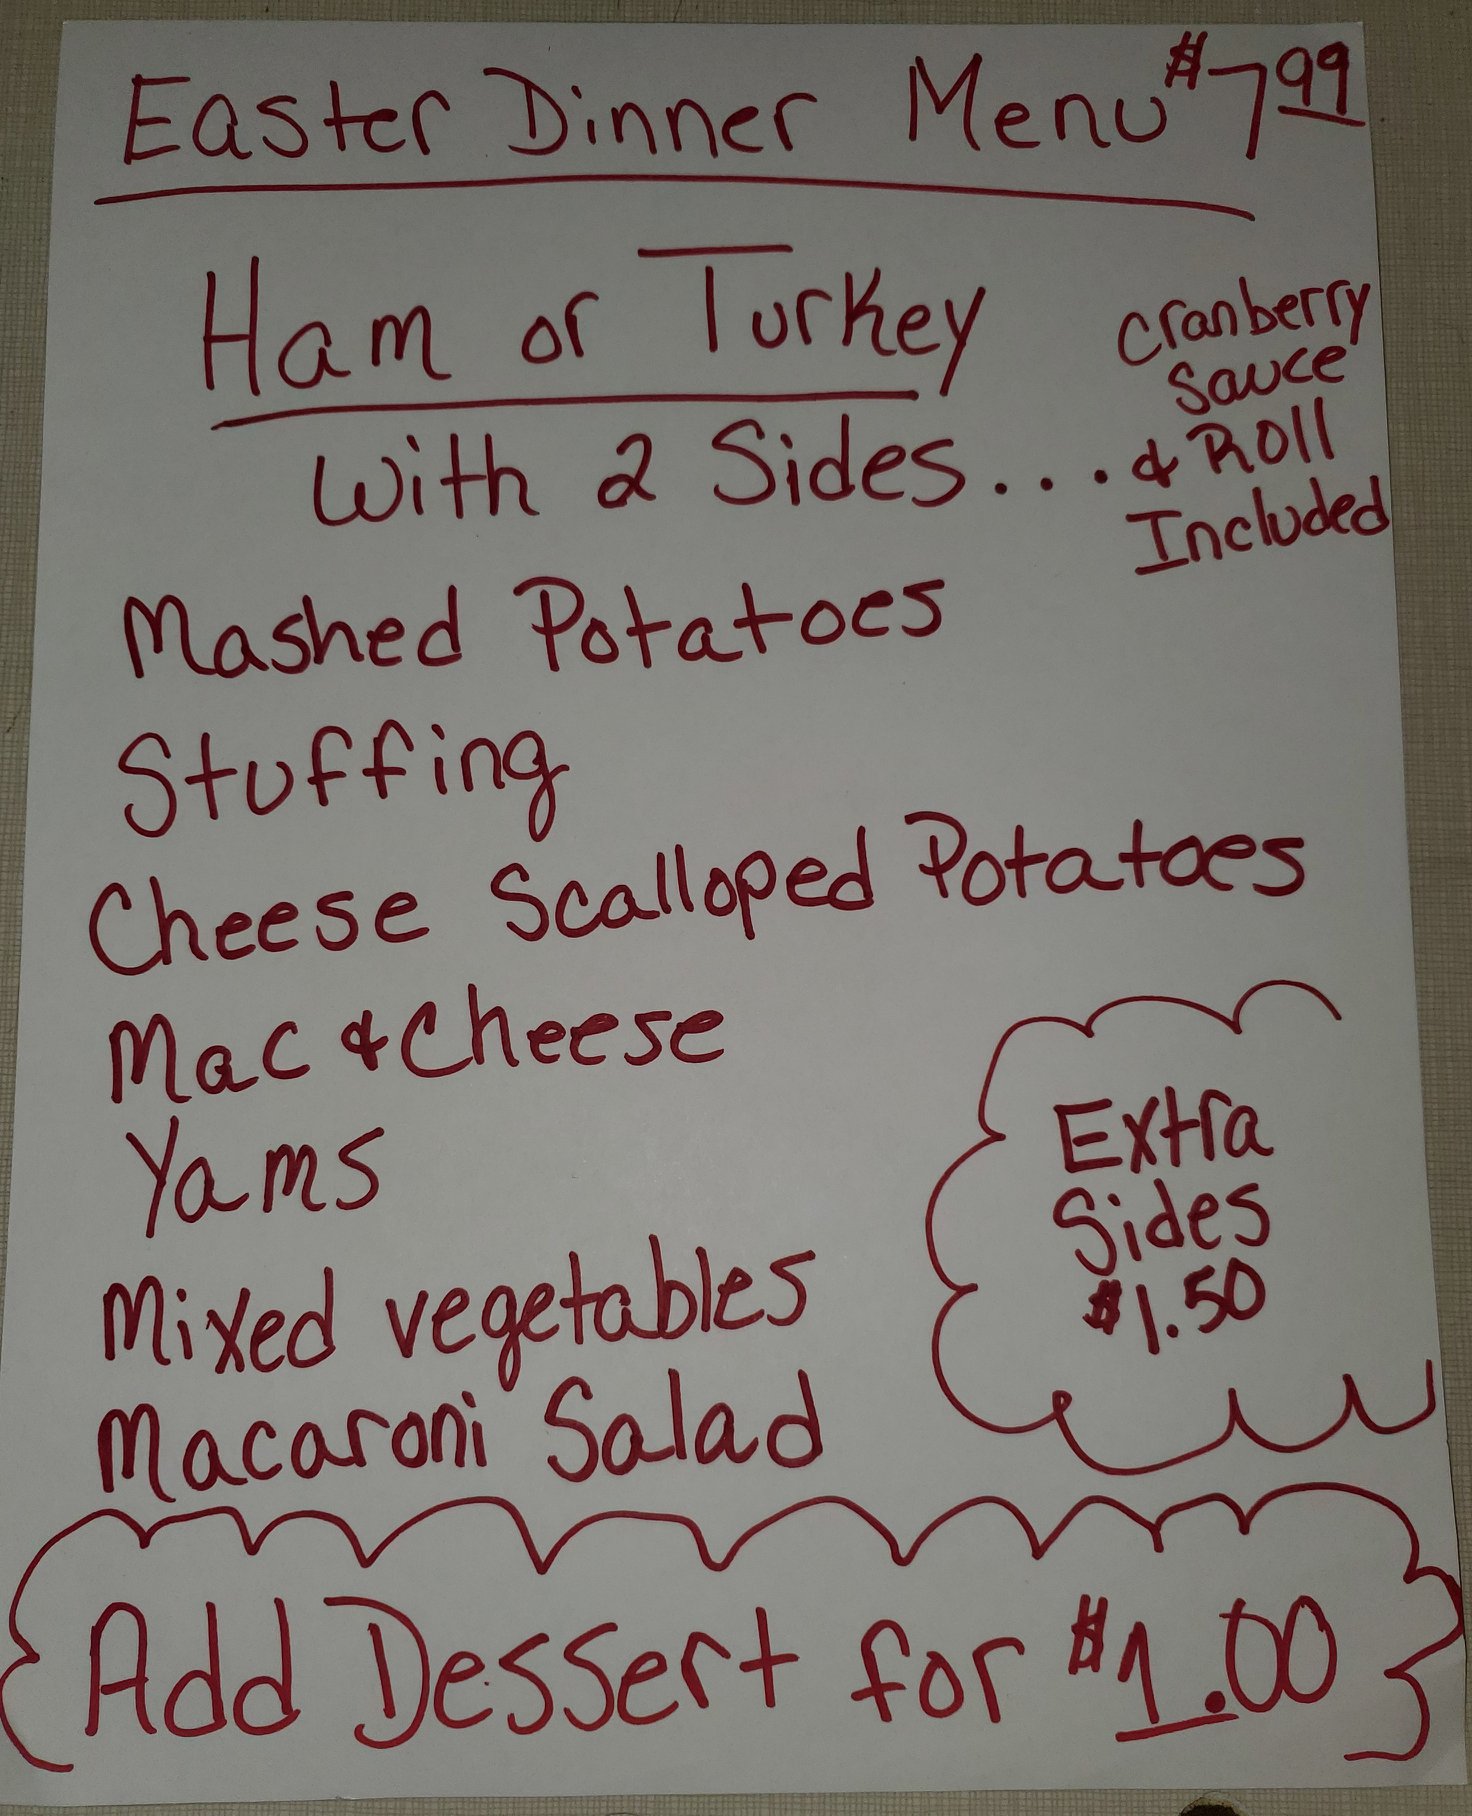 Easter Dinner Menu $7 99
Ham or Turkey
With 2 Sides....
Cranberry
Sauce
& Roll
Included
Mashed Potatoes
Stuffing
Cheese Scalloped Potatoes
Mac & Cheese
Yams
Mixed vegetables
Macaroni Salad
Extra
Sides
$1.50
Add Dessert for $1.00